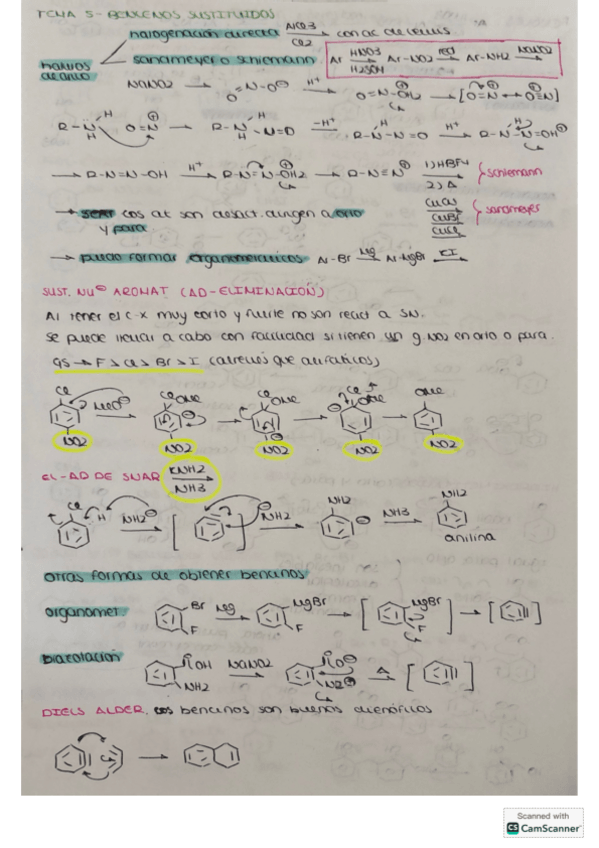 TEMA 5 - BENCENOS SUSTITUIDOS
halogenación directa AlCl3 Cl2 con ac. de Lewis
haluros de arilo
sandmeyer o schiemann Ar HNO3 H2SO4 Ar-NO2 red Ar-NH2 NaNO2
NaNO2 O=N-O⊖ H⁺ O=N-OH2 [O=N ↔ O≡N]
R-N-H H O=N R-N-N=O H -H⁺ R-N-N=O H H⁺ R-N-N=OH
R-N=N-OH H⁺ R-N=N-OH2 R-N≡N 1) HBF4 2) Δ schiemann
CuCl CuBr sandmeyer
→ los at. son desact. dirigen a orto y para
→ puedo formar organometálicos Ar-Br Mg Ar-MgBr
SUST. NU⊖ AROMAT (AD-ELIMINACIÓN)
Al tener el C-X muy corto y fuerte no son react a SN.
Se puede llevar a cabo con facilidad si tienen un g. NO2 en orto o para.
GS → F > Cl > Br > I (al revés que alifáticos)
Cl MeO⊖ Cl OMe Cl OMe Cl OMe OMe
NO2 NO2 NO2 NO2 NO2
EL-AD DE SNAR KNH2 NH3
Cl H NH2⊖ NH2 NH2 NH3 NH2
anilina
otras formas de obtener bencinos
organomet. Br F Mg MgBr F MgBr F
OH NH2 NaNO2 O⊖ N2⊕ Δ
DIELS ALDER. los bencinos son buenos dienófilos
Scanned with
CS CamScanner